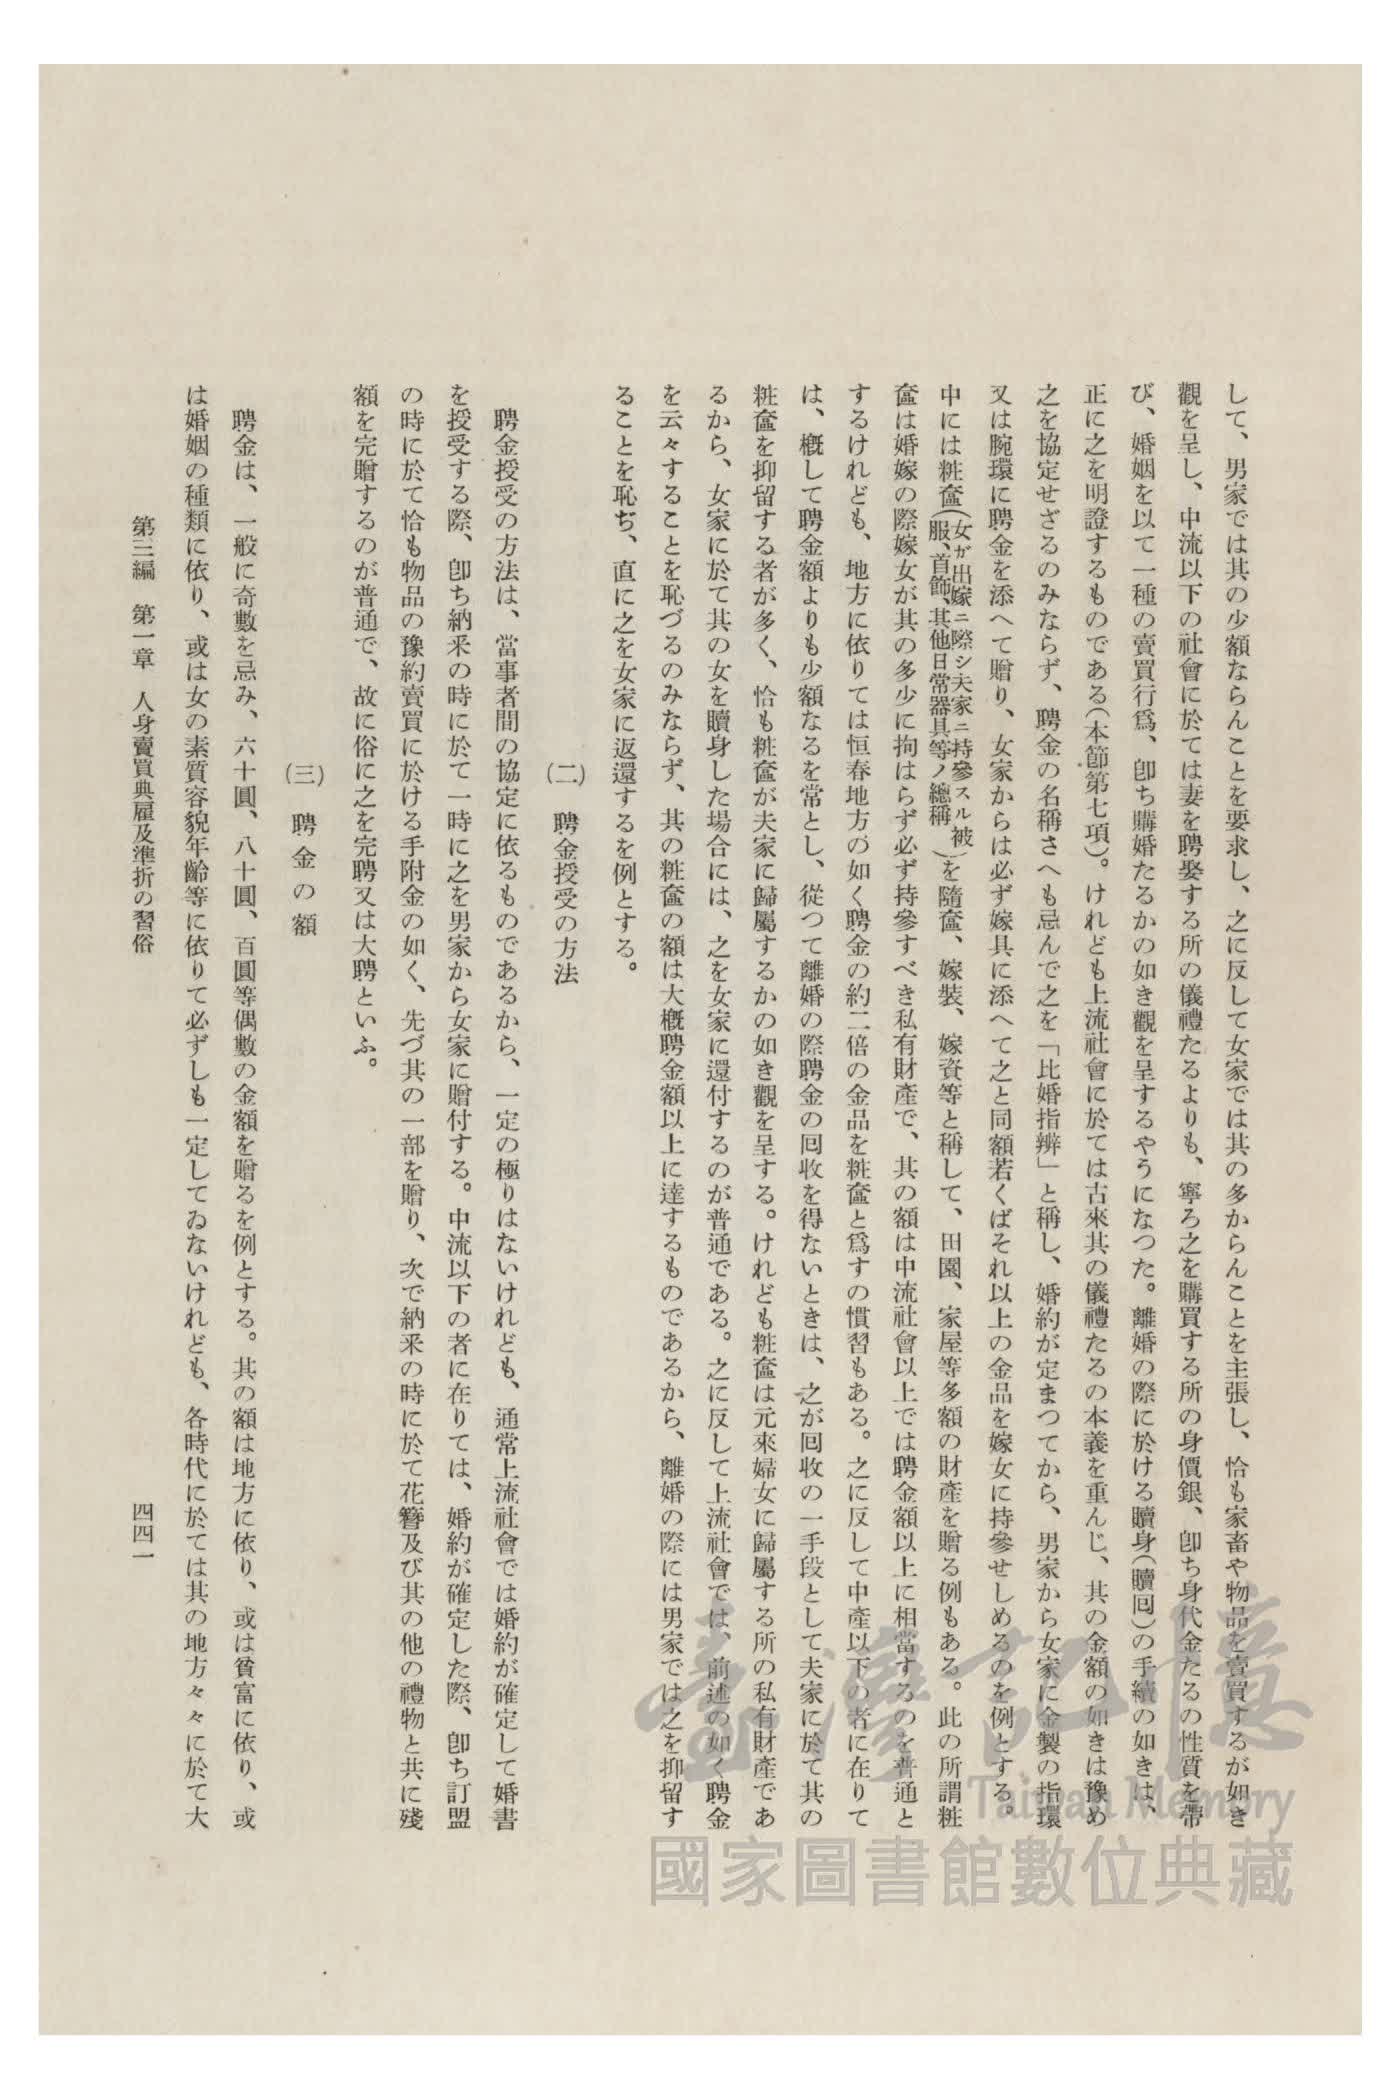 して、男家では其の少額ならんことを要求し、之に反して女家では其の多からんことを主張し、恰も家畜や物品を賣買するが如き
觀を呈し、中流以下の社會に於ては妻を聘娶する所の儀禮たるよりも、寧ろ之を購買する所の身價銀、卽ち身代金たるの性質を帶
び、婚姻を以て一種の賣買行爲、卽ち購婚たるかの如き觀を呈するやうになつた。離婚の際に於ける贖身(贖回)の手續の如きは、
正に之を明證するものである(本節第七項)。けれども上流社會に於ては古來其の儀禮たるの本義を重んじ、其の金額の如きは豫め
之を協定せざるのみならず、聘金の名稱さへも忌んで之を「比婚指辨」と稱し、婚約が定まつてから、男家から女家に金製の指環
又は腕環に聘金を添へて贈り、女家からは必ず嫁具に添へて之と同額若くばそれ以上の金品を嫁女に持參せしめるのを例とする。
中には粧奩(女ガ出嫁ニ際シ夫家ニ持參スル被服、首飾、其他日常器具等ノ總稱)を隨奩、嫁裝、嫁資等と稱して、田園、家屋等多額の財產を贈る例もある。此の所謂粧
奩は婚嫁の際嫁女が其の多少に拘はらず必ず持參すべき私有財產で、其の額は中流社會以上では聘金額以上に相當するのを普通と
するけれども、地方に依りては恒春地方の如く聘金の約二倍の金品を粧奩と爲すの慣習もある。之に反して中產以下の者に在りて
は、槪して聘金額よりも少額なるを常とし、從つて離婚の際聘金の回收を得ないときは、之が回收の一手段として夫家に於て其の
粧奩を抑留する者が多く、恰も粧奩が夫家に歸屬するかの如き觀を呈する。けれども粧奩は元來婦女に歸屬する所の私有財產であ
るから、女家に於て其の女を贖身した場合には、之を女家に還付するのが普通である。之に反して上流社會では、前述の如く聘金
を云々することを恥づるのみならず、其の粧奩の額は大槪聘金額以上に達するものであるから、離婚の際には男家では之を抑留す
ることを恥ぢ、直に之を女家に返還するを例とする。
(二)　聘金授受の方法
聘金授受の方法は、當事者間の協定に依るものであるから、一定の極りはないけれども、通常上流社會では婚約が確定して婚書
を授受する際、卽ち納釆の時に於て一時に之を男家から女家に贈付する。中流以下の者に在りては、婚約が確定した際、卽ち訂盟
の時に於て恰も物品の豫約賣買に於ける手附金の如く、先づ其の一部を贈り、次で納釆の時に於て花簪及び其の他の禮物と共に殘
額を完贈するのが普通で、故に俗に之を完聘又は大聘といふ。
(三)　聘金の額
聘金は、一般に奇數を忌み、六十圓、八十圓、百圓等偶數の金額を贈るを例とする。其の額は地方に依り、或は貧富に依り、或
は婚姻の種類に依り、或は女の素質容貌年齡等に依りて必ずしも一定してゐないけれども、各時代に於ては其の地方々々に於て大
第三編　第一章　人身賣買典雇及準折の習俗
四四一
臺灣記憶
Taiwan Memory
國家圖書館數位典藏